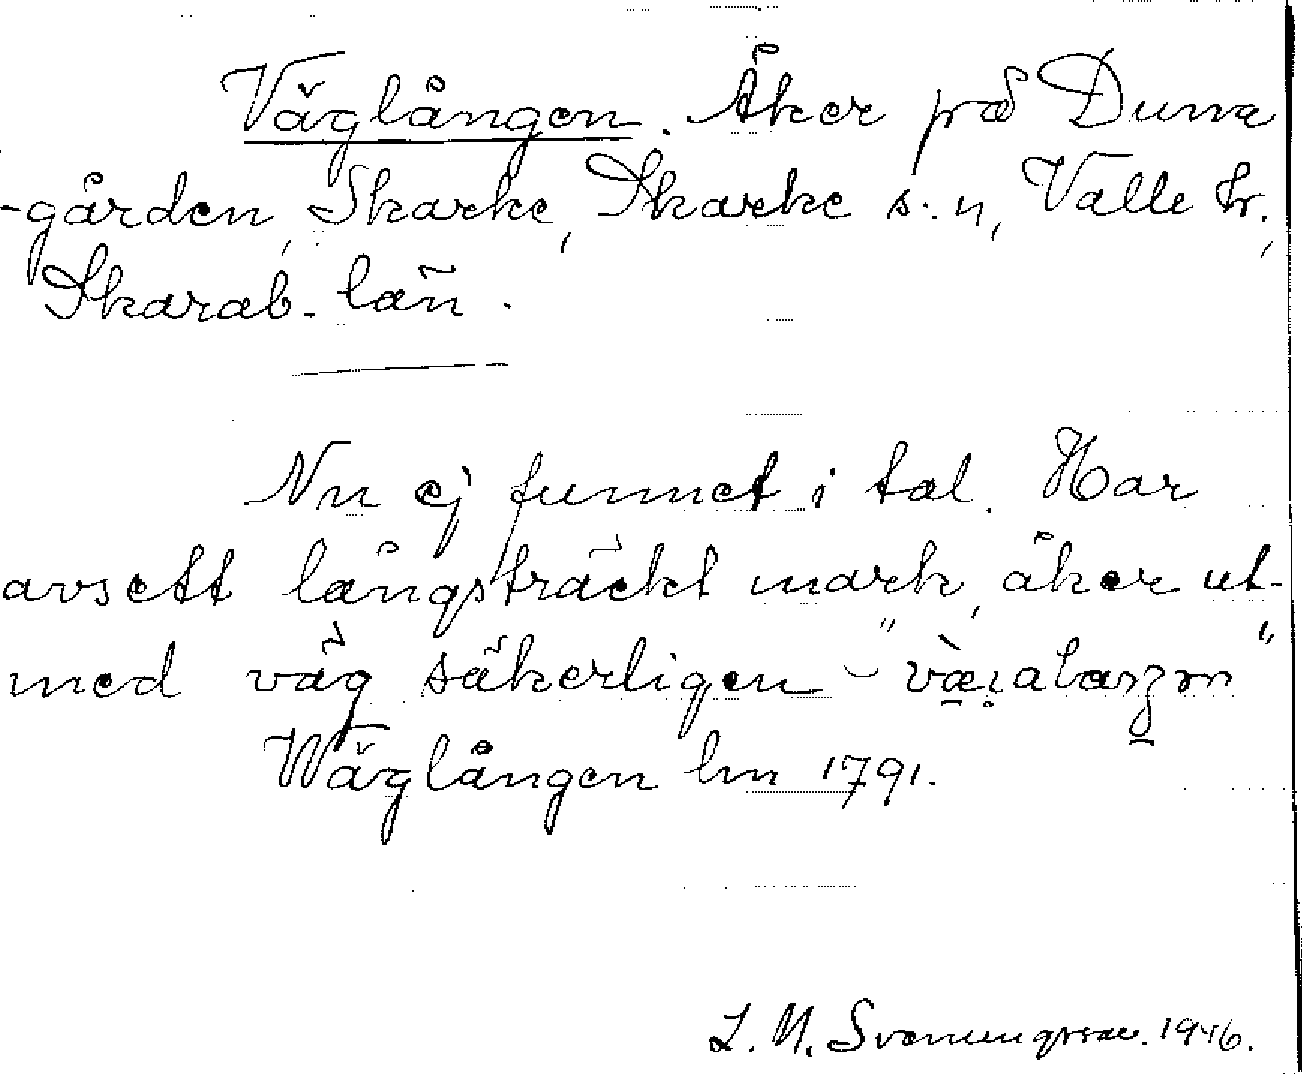 Väglången. Åker på Dunna
-gården, Skarke, Skarke s:n, Valle hr.,
Skarab. län.
Nu ej funnet i tal. Har
avsett långsträckt mark, åker ut-
med väg säkerligen -
Wäglången lm 1791.
L. N. Svenungsson. 1946.